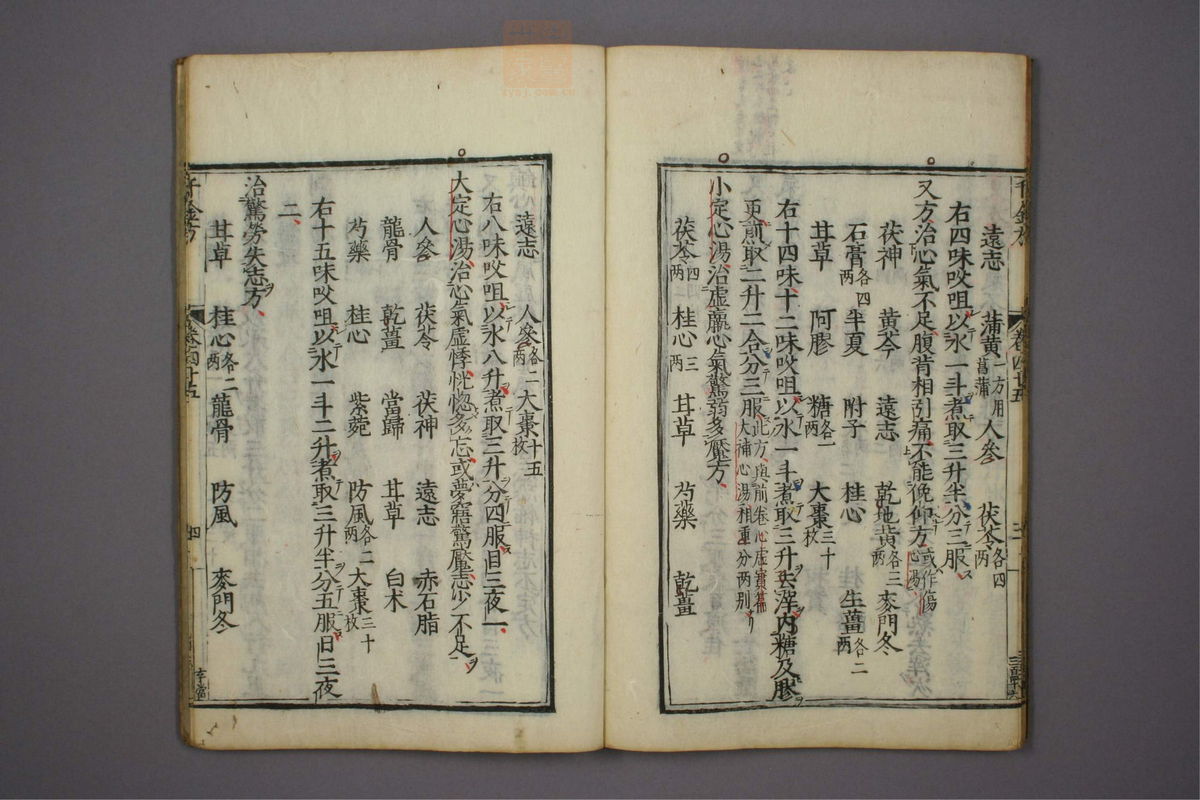 遠志 蒲黃一方用菖蒲 人參 茯苓各四兩
右四味㕮咀以水一斗煮取三升半分三服
又方治心氣不足腹背相引痛不能俛仰方或作傷心湯
茯神 黃芩 遠志 乾地黃各三兩 麥門冬
石膏各四兩 半夏 附子 桂心 生薑各二兩
甘草 阿膠 糖各一兩 大棗三十枚
右十四味十二味㕮咀以水一斗煮取三升去滓內糖及膠
更煎取二升二合分三服此方與前卷心虛實篇大補心湯相重分兩別
小定心湯治虛羸心氣驚弱多魘方
茯苓四兩 桂心三兩 甘草 芍藥 乾薑
遠志 人參各二兩 大棗十五枚
右八味㕮咀以水八升煮取三升分四服日三夜一
大定心湯治心氣虛悸恍惚多忘或夢寤驚魘志少不足
人參 茯苓 茯神 遠志 赤石脂
龍骨 乾薑 當歸 甘草 白朮
芍藥 桂心 紫菀 防風各二兩 大棗三十枚
右十五味㕮咀以水一斗二升煮取三升半分五服日三夜
二
治驚勞失志方
甘草 桂心各二兩 龍骨 防風 麥門冬
千金方 卷四十五 四